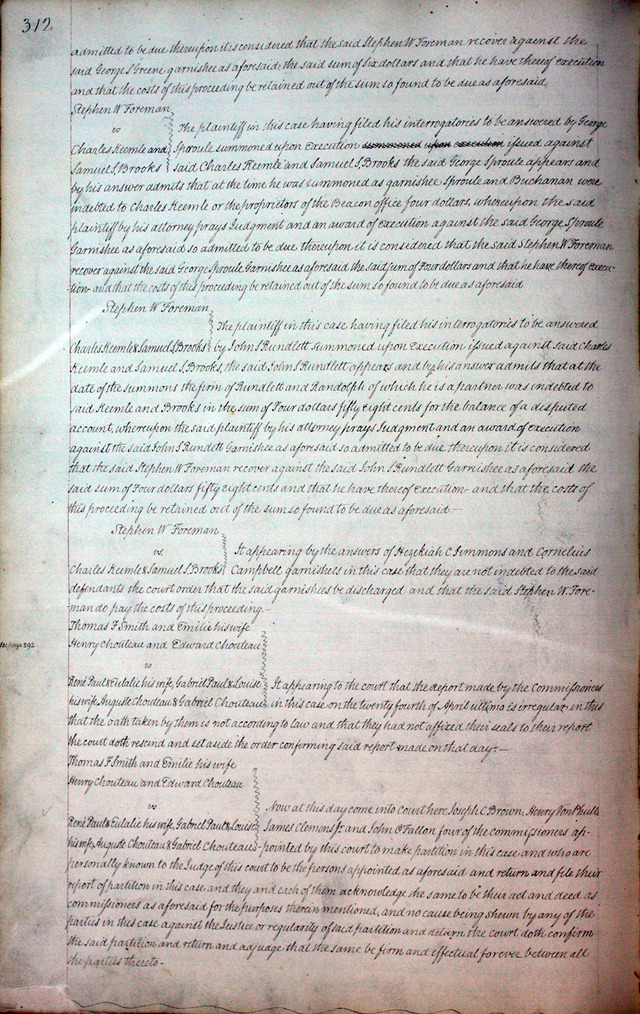 312
admitted to be due thereupon it is considered that the said Stephen W Foreman recover against the
said George S Greene garnishee as aforesaid, the said sum of six dollars and that he have thereof execution
and that the costs of this proceeding be retained out of the sum so found to be due as aforesaid
Stephen W Foreman
vs The plaintiff in this case having filed his interrogatories to be answered by George
Charles Keemle and Sproule summoned upon Execution summoned upon execution issued against
Samuel S, Brooks said Charles Keemle and Samuel S, Brooks the said George Sproule appears and
by his answer admits that at the time he was summoned as garnishee Sproule and Buchanan were
indebted to Charles Keemle or the proprietors of the Beacon office four dollars, whereupon the said
plaintiff by his attorney prays Judgment and an award of execution against the said George Sproule
Garnishee as aforesaid so admitted to be due thereupon it is considered that the said Stephen W Foreman
recover against the said George Sproule Garnishee as aforesaid the said sum of Four dollars and that he have thereof execu-
-tion- and that the costs of this proceeding be retained out of the sum so found to be due as aforesaid
Stephen W Foreman
The plaintiff in this case having filed his interrogatories to be answered
Charles Keemle & Samuel S, Brooks by John S Rundlett summoned upon Execution issued against said Charles
Keemle and Samuel S, Brooks, the said John S Rundlett appears and by his answer admits that at the
date of the summons the firm of Rundlett and Randolph of which he is a partner was indebted to
said Keemle and Brooks in the sum of Four dollars fifty eight cents for the balance of a disputed
account, whereupon the said plaintiff by his attorney prays Judgment and an award of execution
against the said John S Rundett Garnishee as aforesaid so admitted to be due thereupon it is considered
that the said Stephen W Foreman recover against the said John S Rundlett Garnishee as aforesaid the
said sum of Four dollars fifty eight cents and that he have thereof execution- and that the costs of
this proceeding be retained out of the sum so found to be due as aforesaid-
Stephen W Foreman
vs. It appearing by the answers of Hezekiah C Simmons and Cornelius
Charles Keemle & Samuel S, Brooks Campbell garnishees in this case that they are not indebted to the said
defendants the court order that the said garnishees be discharged and that the said Stephen W. Fore-
man do pay the costs of this proceeding.-
Thomas F Smith and Emilie his wife
Henry Chouteau and Edward Chouteau
see page 292
vs
René Paul & Eulalie his wife, Gabriel Paul & Louise It appearing to the court that the report made by the Commissioners
his wife, Auguste Chouteau & Gabriel Chouteau in this case on the twenty fourth of April ultimo is irregular in this
that the oath taken by them is not according to law and that they had not affixed their seals to their report
the court doth rescind and set aside the order confirming said report made on that day.-
Thomas F Smith and Emilie his wife
Henry Chouteau and Edward Chouteau
vs Now at this day come into court here Joseph C Brown, Henry Von Phulls
René Paul & Eulalie his wife, Gabriel Paul & Louise James Clemens Jr and John O'Fallon four of the commissioners ap-
his wife, Auguste Chouteau & Gabriel Chouteau -pointed by this court to make partition in this case and who are
personally known to the Judge of this court to be the persons appointed as aforesaid and return and file their
report of partition in this case, and they and each of them acknowledge the same to be their act and deed as
commissioners as aforesaid for the purposes therein mentioned, and no cause being shewn by any of the
parties in this case against the Justice or regularity of said partition and return the court doth confirm
the said partition and return and adjudge that the same be firm and effectual forever between all
the parties thereto-